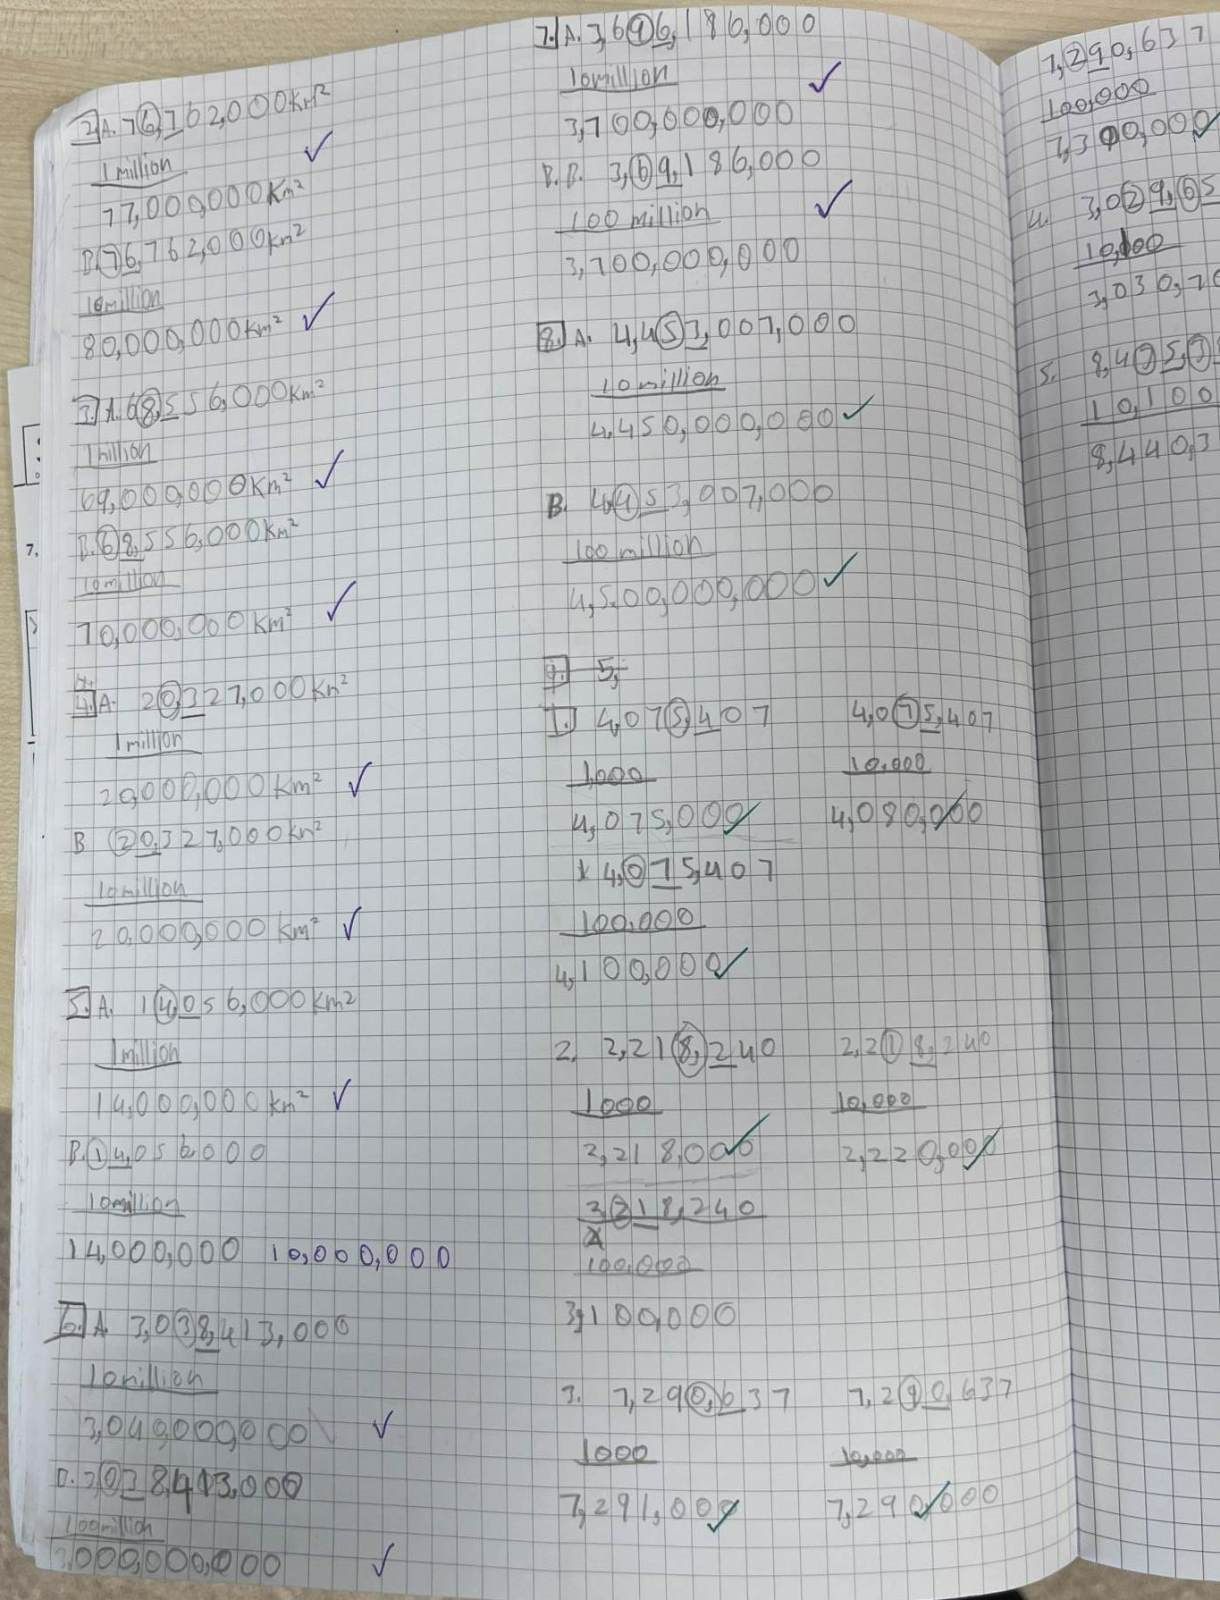 2. A. 76,762,000Km²
1 million
77,000,000Km²
B. 76,762,000Km²
10million
80,000,000Km²
3. A. 68,556,000Km²
1million
69,000,000Km²
B. 68,556,000Km²
10million
70,000,000Km²
4. A. 20,327,000Km²
1million
20,000,000Km²
B 20,327,000Km²
10million
20,000,000Km²
5. A. 14,056,000Km2
1million
14,000,000Km²
B. 14,056,000
10million
14,000,000 10,000,000
6. A. 3,038,413,000
10million
3,040,000,000
B. 3,038,413,000
100million
3,000,000,000
7. A. 3,696,186,000
10million
3,700,000,000
B. B. 3,69,186,000
100 million
3,700,000,000
8. A. 4,453,007,000
10million
4,450,000,000
B. 4,453,007,000
100million
4,500,000,000
9. 5,
1. 4,075,407 4,075,407
1,000 10,000
4,075,000 4,080,000
4,075,407
100,000
4,100,000
2. 2,218,240 2,218,240
1000 10,000
2,218,000 2,220,000
3218,240
100,000
3,100,000
3. 7,290,637 7,290,637
1000 10,000
7,291,000 7,290,000
7,290,637
100,000
7,300,000
4. 3,029,65
10,100
3,030,70
5. 8,4
10,100
8,440,3
7.